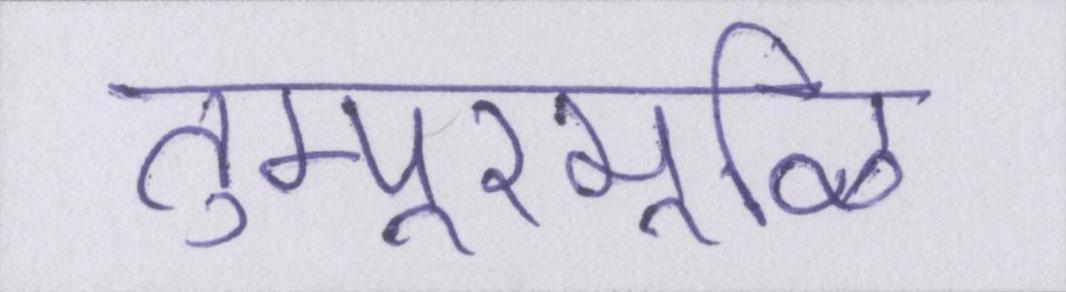 तुम्पूरमूळि